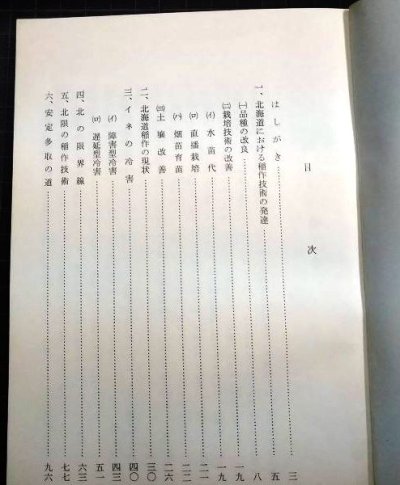 目次
はしがき…三
一、北海道における稲作技術の発達…五
㈠品種の改良…八
㈡栽培技術の改善…一九
(イ)水苗代…一九
(ロ)直播栽培…二一
(ハ)畑苗育苗…二二
㈢土壌改善…二六
二、北海道稲作の現状…三〇
三、イネの冷害…四〇
(イ)障害型冷害…四三
(ロ)遅延型冷害…五一
四、北の限界線…六三
五、北限の稲作技術…七七
六、安定多収の道…九六